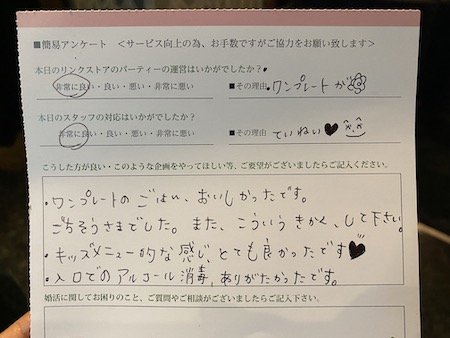 ■簡易アンケート <サービス向上の為、お手数ですがご協力をお願い致します>
本日のリンクストアのパーティーの運営はいかがでしたか?
非常に良い・良い・悪い・非常に悪い ■その理由 ワンプレートが
本日のスタッフの対応はいかがでしたか?
非常に良い・良い・悪い・非常に悪い ■その理由 ていねい♥
こうした方が良い・このような企画をやってほしい等、ご要望がございましたらご記入ください。
・ワンプレートのごはん、おいしかったです。
ごちそうさまでした。また、こういうきかく、して下さい。
・キッズメニュー的な感じ、とても良かったです♥
・入口でのアルコール消毒、ありがたかったです。
婚活に関してお困りのこと、ご質問やご相談がございましたらご記入下さい。